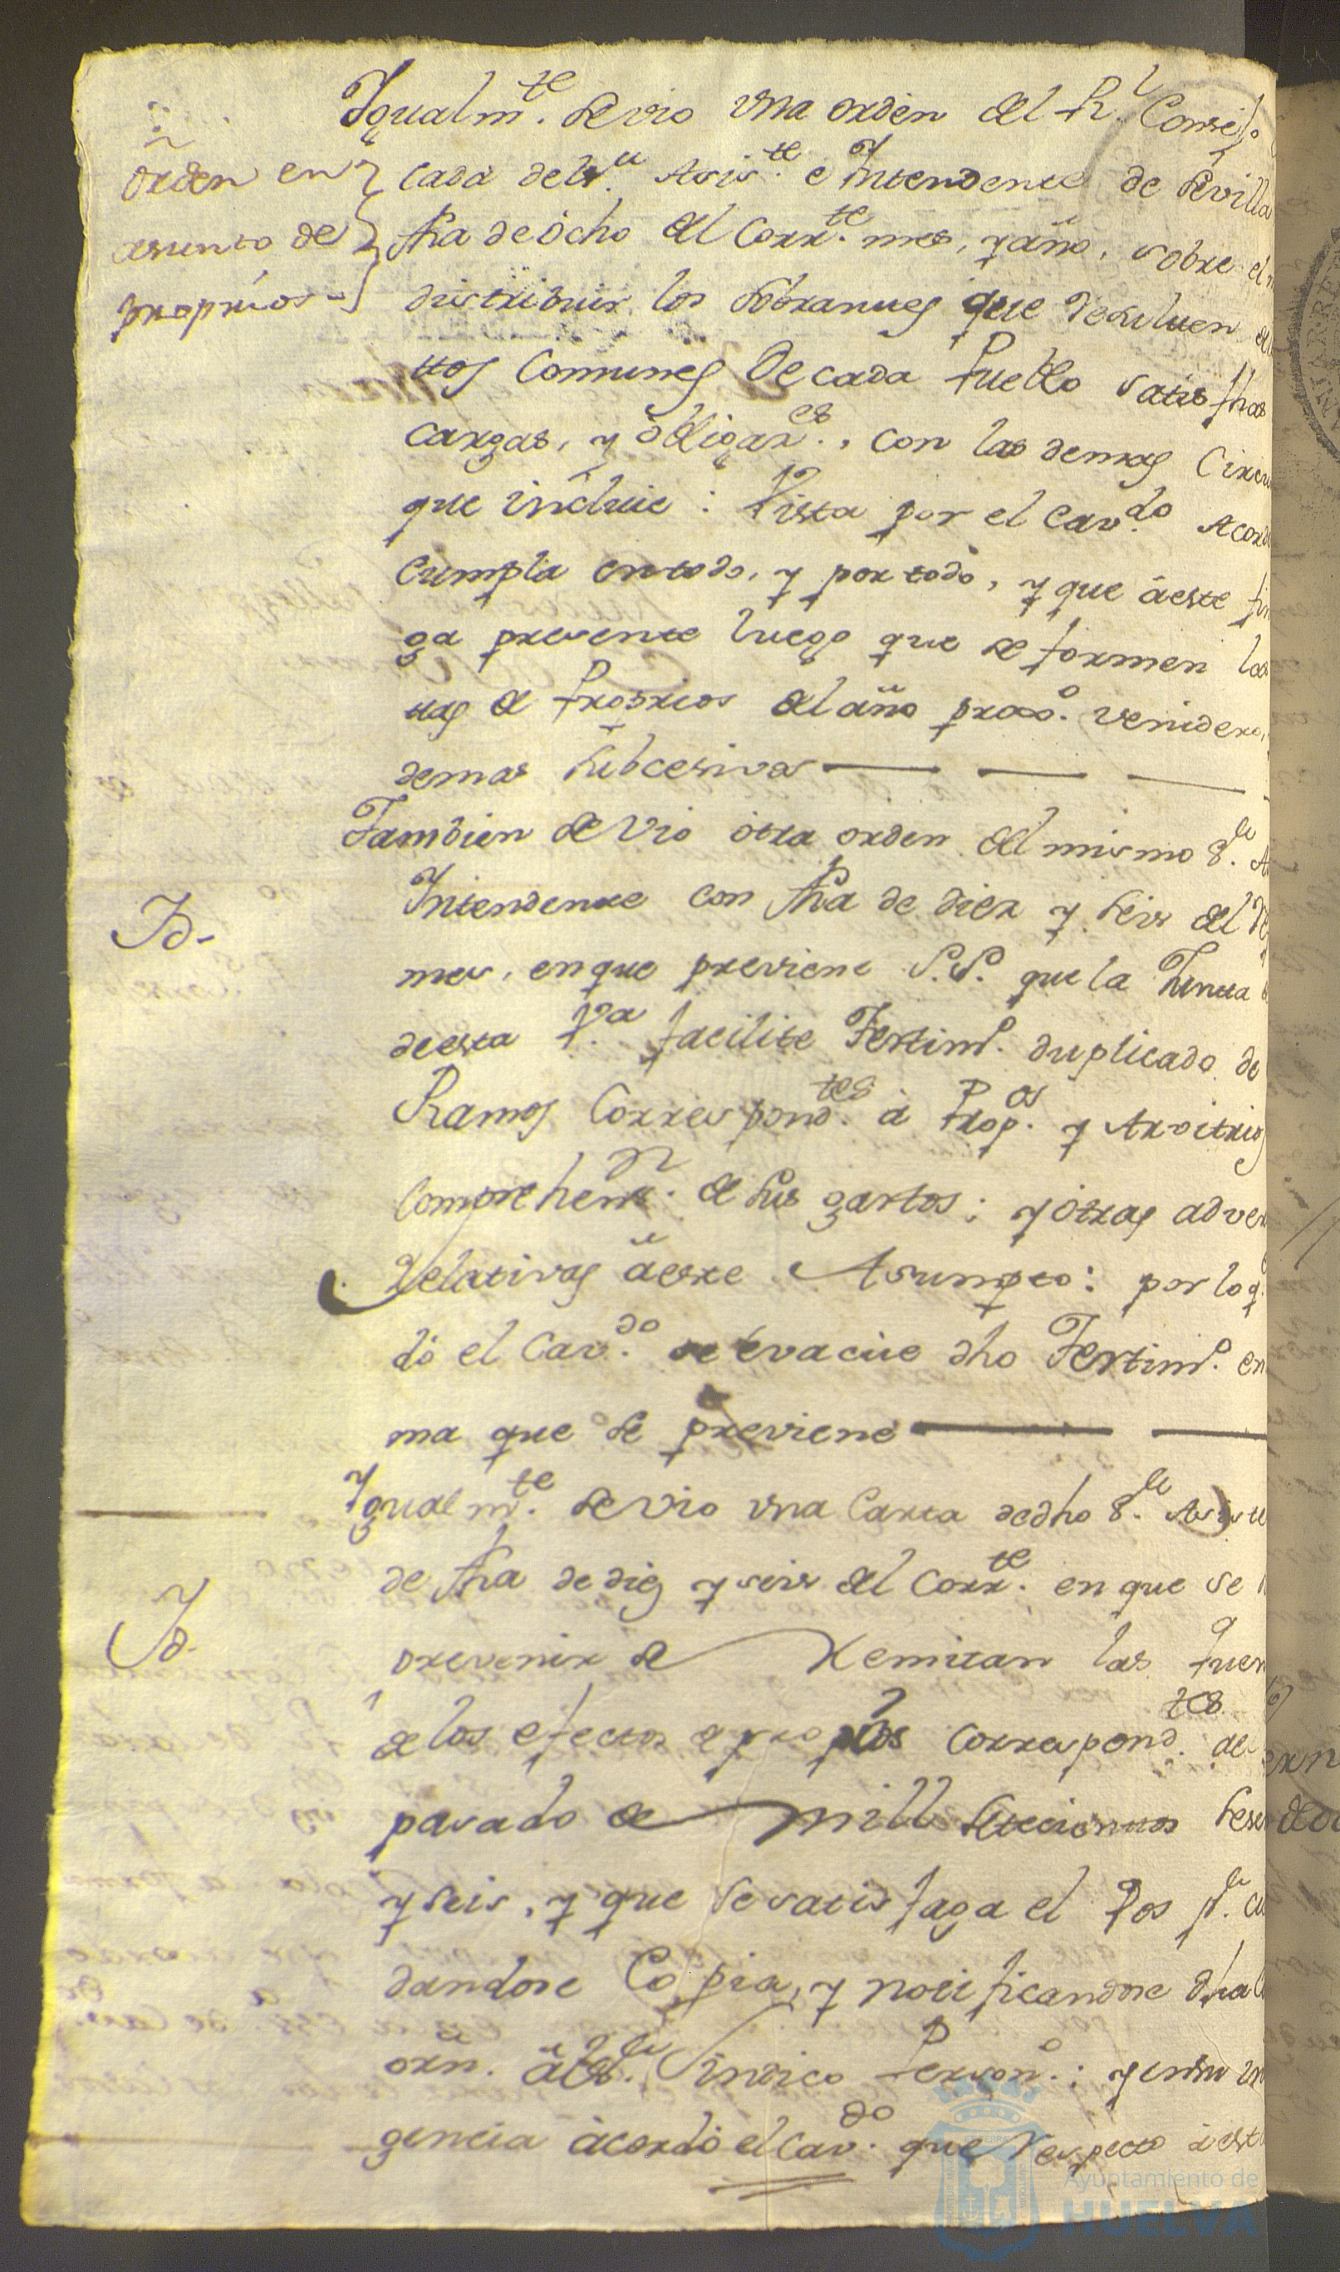 Ygualm.te se vio una orden del R.l Consejo
Orden en
asunto de
proprios
cada del S.r Asis.te e Yntendente de Sevilla
fha de ocho del Corr.te mes, y año, sobre el
distribuir los sobranues que
ttos Comunes de cada Pueblo satisfhas
cargas, y obligaz.es, con las demas
que incluie: Vista por el Cav.do Acord
cumpla en todo, y por todo, y que áeste fin
ga presente luego que se formen las
tas de Proprios del año prox.o venidero,
demas subcesivas
Tambien se vio otra orden del mismo S.r
Yd.
Yntendente con fha de diez y seis del
mes, en que previene S.S. que la Junta
de esta V.a facilite Testim.o duplicado de
Ramos Correspond.tes á Prop.os y Arvitrios
Comprehens.n de sus gastos; y otras adver
relativas áeste Asumpto: por lo q.
dó el Cav.do se evacúe dho Testim.o en
ma que se previene
Ygualm.te se vio una Carta de dho S.r Asiste
de fha de diez y seis del Corr.te en que se
Yd.
prevenir se Remitan las quen
de los efectos de proprios Correspond.tes al
pasado de mill setecientos sesen
y seis, y que se satisfaga el Dos p.r
dandose Copia, y notificandose dha
orn. ál S.r Sindico Person.o; y en su
gencia ácordó el Cav.do que respecto á est
Ayuntamiento de
HUELVA